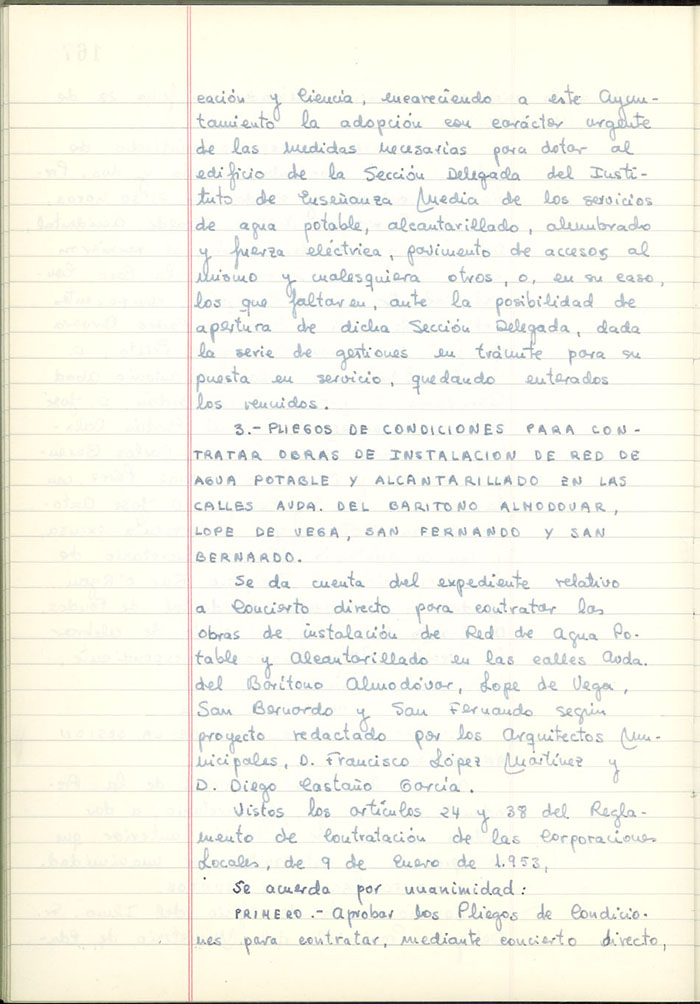 cación y Ciencia, encareciendo a este Ayun-
tamiento la adopción con carácter urgente
de las medidas necesarias para dotar al
edificio de la Sección Delegada del Insti-
tuto de Enseñanza Media de los servicios
de agua potable, alcantarillado, alumbrado
y fuerza eléctrica, pavimento de accesos al
mismo y cualesquiera otros, o, en su caso,
los que faltaren, ante la posibilidad de
apertura de dicha Sección Delegada, dada
la serie de gestiones en trámite para su
puesta en servicio, quedando enterados
los reunidos.
3.- PLIEGOS DE CONDICIONES PARA CON-
TRATAR OBRAS DE INSTALACION DE RED DE
AGUA POTABLE Y ALCANTARILLADO EN LAS
CALLES AVDA. DEL BARITONO ALMODOVAR,
LOPE DE VEGA, SAN FERNANDO Y SAN
BERNARDO.
Se da cuenta del expediente relativo
a Concierto directo para contratar las
obras de instalación de Red de Agua Po-
table y Alcantarillado en las calles Avda.
del Barítono Almodóvar, Lope de Vega,
San Bernardo y San Fernando según
proyecto redactado por los Arquitectos Mu-
nicipales, D. Francisco López Martínez y
D. Diego Castaño García.
Vistos los artículos 24 y 38 del Regla-
mento de Contratación de las Corporaciones
Locales, de 9 de Enero de 1.953,
Se acuerda por unanimidad:
PRIMERO.- Aprobar los Pliegos de Condicio-
nes para contratar, mediante concierto directo,